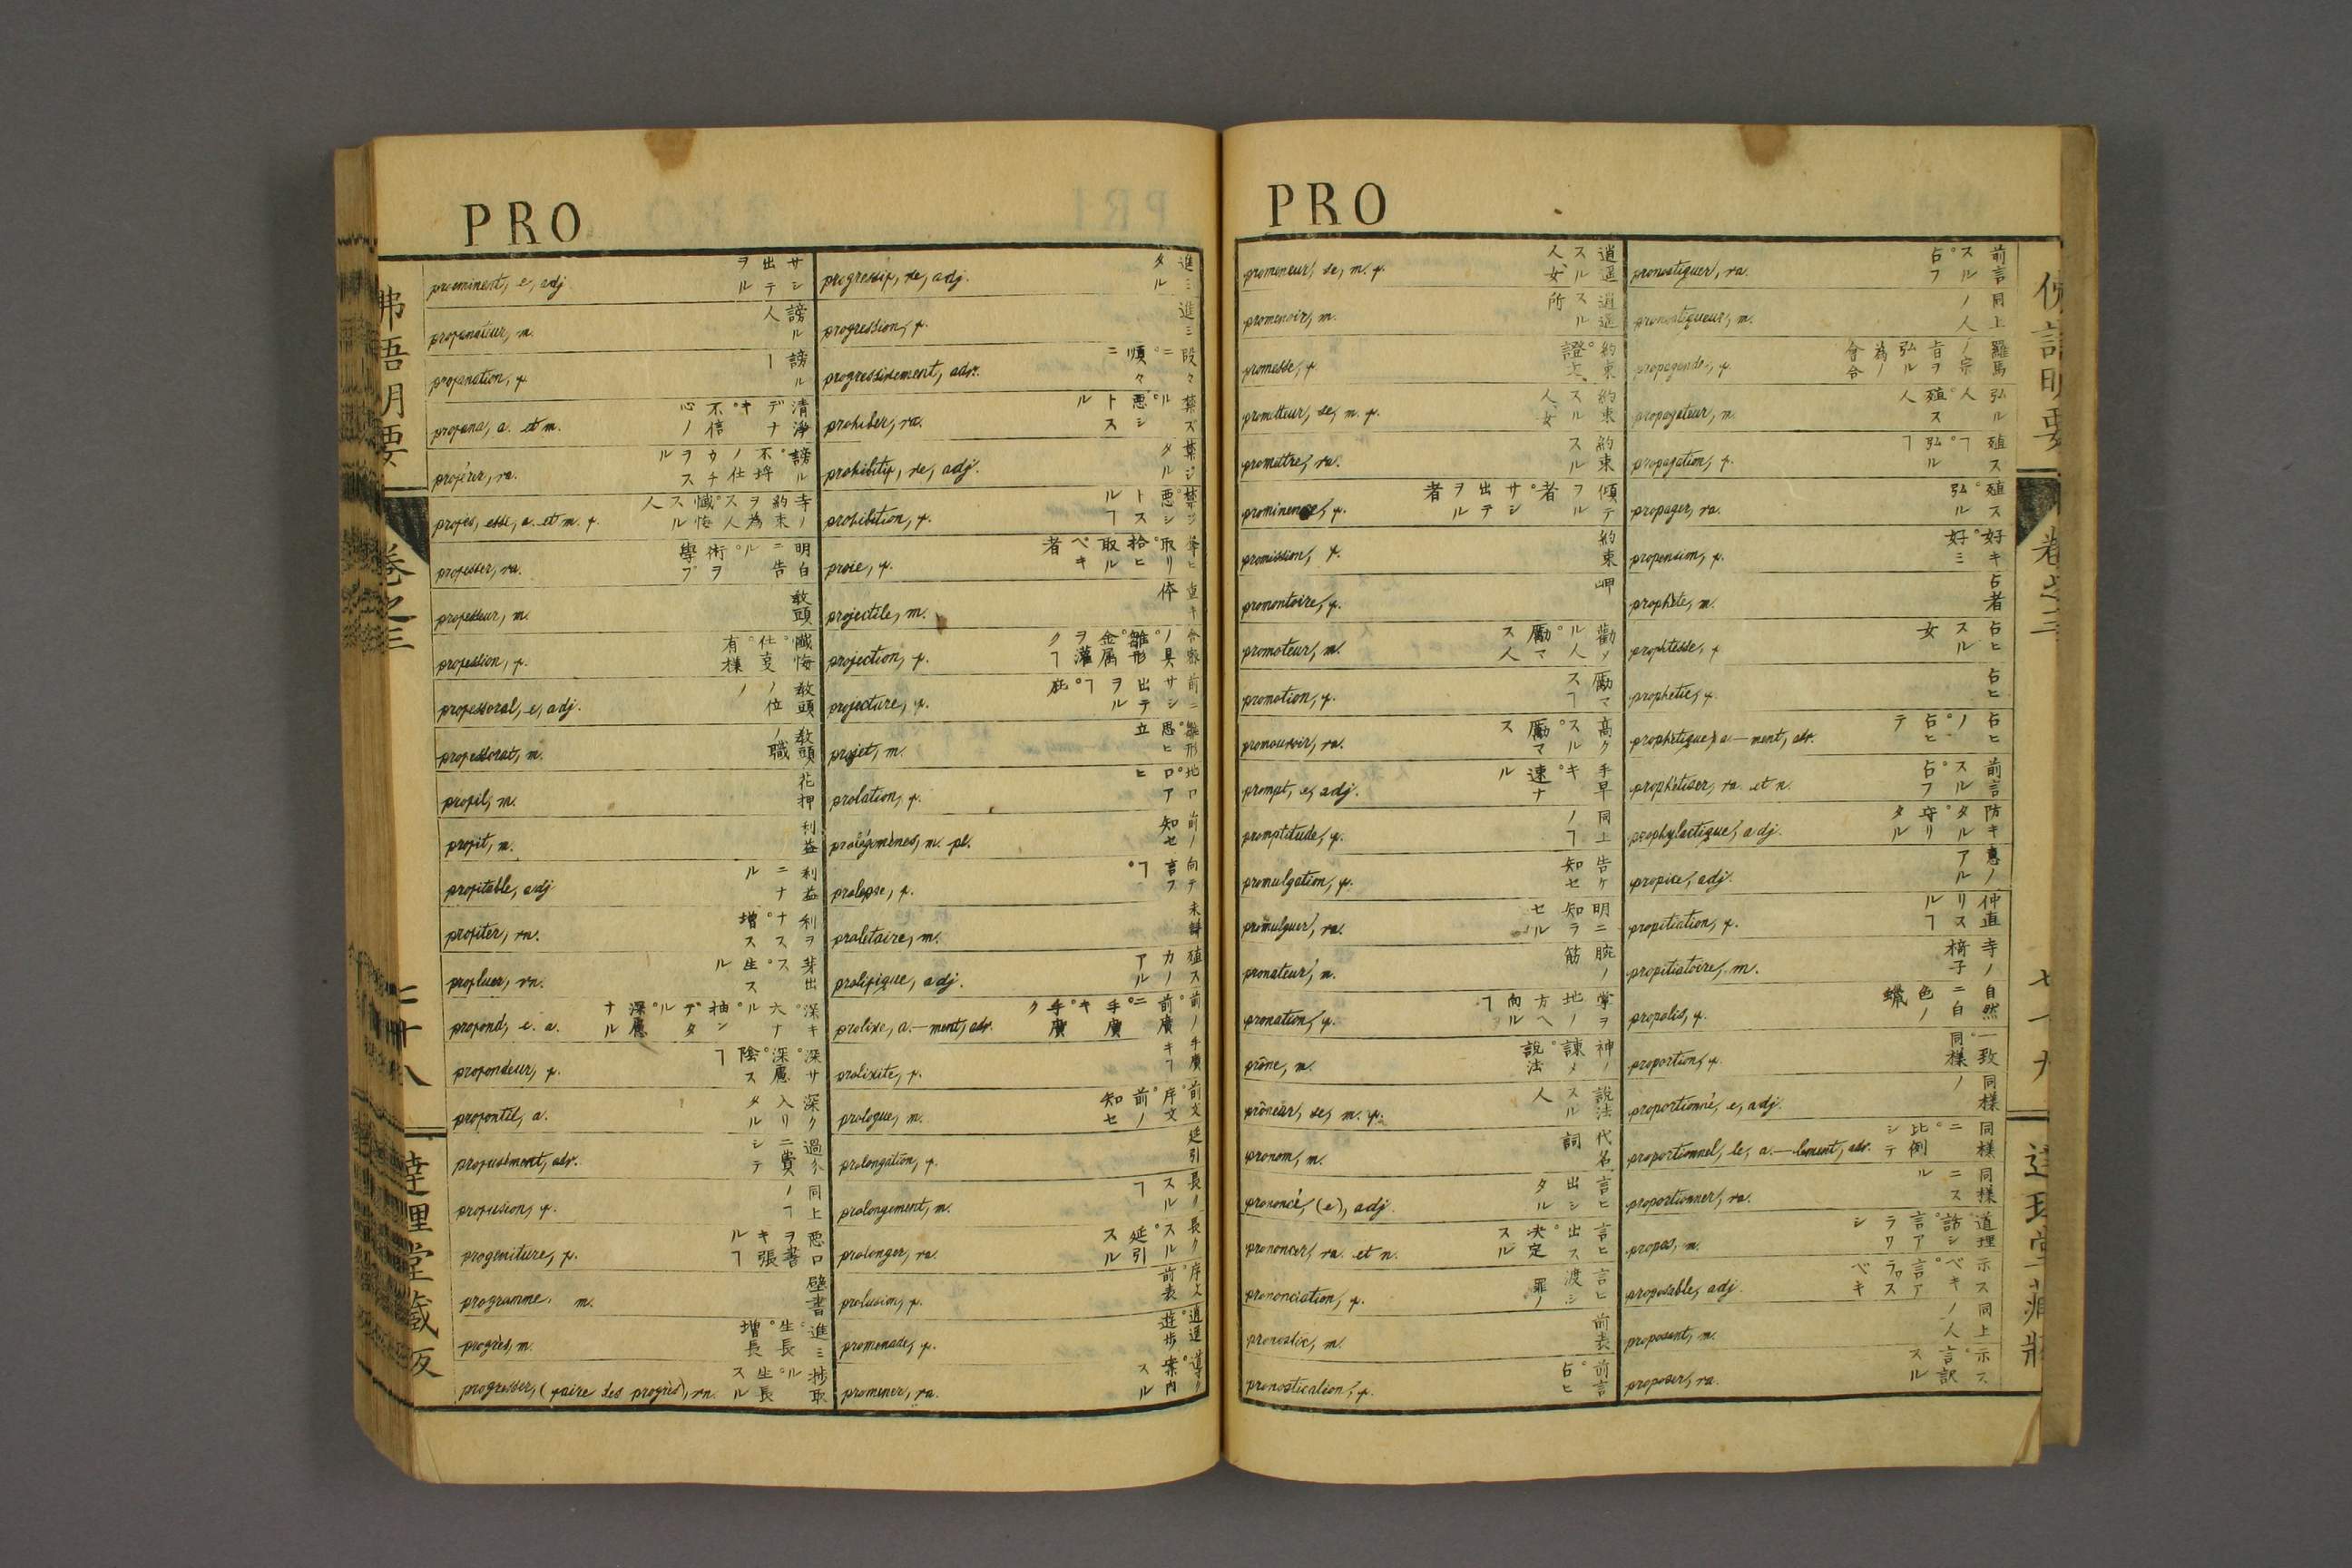 PRO
proéminent, e, adj. サシ出テヲル
profanateur, m. 謗ル人
profanation, f. 謗ルー
profane, a. et m. 清淨デナキ°不信ノ心
proférer, va.
profès, esse, a. et m. f.
professer, va. 明白ニ告ル°術ヲ學ブ
professeur, m. 教頭
profession, f. 懺悔°仕叓°有様
professoral, e, adj. 教頭ノ位ノ
professorat, m. 教頭ノ職
profil, m. 花押
profit, m. 利益
profitable, adj 利益ニナル
profiter, vn. 利ヲナス°増ス
profluer, vn. 芽出ス°生スル
profond, e. a.
profondeur, f. 深サ°深慮°陰スㄱ
profontié, a. 深ク入リタル
profusément, adv. 過分ニ費シテ
profusion, f. 同上ノㄱ
progéniture, f.
programme. m. 壁書
progrès, m. 進ミ°生長°増長
progresser, (faire des progrès), vn. 捗取ル°生長スル
progressif, ve, adj. 進ミタル
progression, f. 進ミ
progressivement, adv. 段々ニ°順々ニ
prohiber, va. 禁ズル°悪シトス
prohibitif, ve, adj. 禁ジタル
prohibition, f. 禁ズル°悪シトスㄱ
proie, f. 奪ヒ取リ°拾ヒ取ルベキ者
projectile, m. 重キ体
projection, f.
projecture, f. 前ニサシ出テヲルㄱ°庇
projet, m. 雛形°思ヒ立
prolation, f.
prolégomènes, m. pl. 前ノ知セ
prolepse, f. 向テ言フㄱ°
prolétaire, m. 未詳
prolifique, adj. 殖ス力ノアル
prolixe, a. — ment, adv.
prolixité, f. 手廣キㄱ
prologue, m. 前文°序文°前ノ知セ
prolongation, f. 延引
prolongement, m. 長クスルㄱ
prolonger, va. 長クスル°延引スル
prolusion, f. 序文°前表
promenade, f. 逍遥°遊歩
promener, va. 導ク°案内スル
PRO
promeneur, se, m. f. 逍遥スル人女
promenoir, m. 逍遥スル所
promesse, f. 約束°證文
prometteur, se, m. f. 約束スル人女
promettre, va. 約束スル
prominence, f. 傾テヲル者°サシ出テヲル者
promission, f. 約束
promontoire, f. 岬
promoteur, m. 勸メル人°勵マス人
promotion, f. 勵マスㄱ
promouvoir, va. 高クスル°勵マス
prompt, e, adj. 手早キ°速ナル
promptitude, f. 同上ノㄱ
promulgation, f. 告ケ知セ
promulguer, va. 明ニ知ラセル
pronateur, m. 腕ノ筋
pronation, f. 掌ヲ地ノ方ヘ向ルㄱ
prône, m. 神ノ諫メ°説法
prôneur, se, m. f. 説法スル人
pronom, m. 代名詞
prononcé, (e), adj. 言ヒ出シタル
prononcer, va. et n. 言ヒ出ス°決定スル
prononciation, f. 言ヒ渡シ
pronostic, m. 前表
pronostication, f. 前言°占ヒ
pronostiquer, va. 前言スル°占フ
pronostiqueur, m. 同上ノ人
propagande, f. 羅馬ノ宗旨ヲ弘ル為ノ會合
propagateur, m. 弘ル人°殖ス人
propagation, f. 殖スㄱ°弘ルㄱ
propager, va. 殖ス°弘ル
propension, f. 好キ°好ミ
prophète, m. 占者
prophtesse, f 占ヒスル女
prophétie, f. 占ヒ
prophétique, a. — ment, adv. 占ヒノ°占ヒテ
prophétiser, va. et n. 前言スル°占フ
prophylactique, adj. 防キタル°守リタル
propice, adj. 惠ノアル
propitiation, f. 仲直リスルㄱ
propitiatoire, m. 寺ノ椅子
propolis, f. 自然ニ白色ノ蠟
proportion, f. 一致°同様
proportionné, e, adj. 同様ノ
proportionnel, le, a. — lement, adv. 同様ニ°比例シテ
proportionner, va. 同様ニスル
propos, m. 道理°話シ°言アラワシ
proposable, adj. 示スベキ°言アラワスベキ
proposant, m. 同上ノ人
proposer, va. 示ス°言訳スル
卷之三
二十八
達理堂藏版